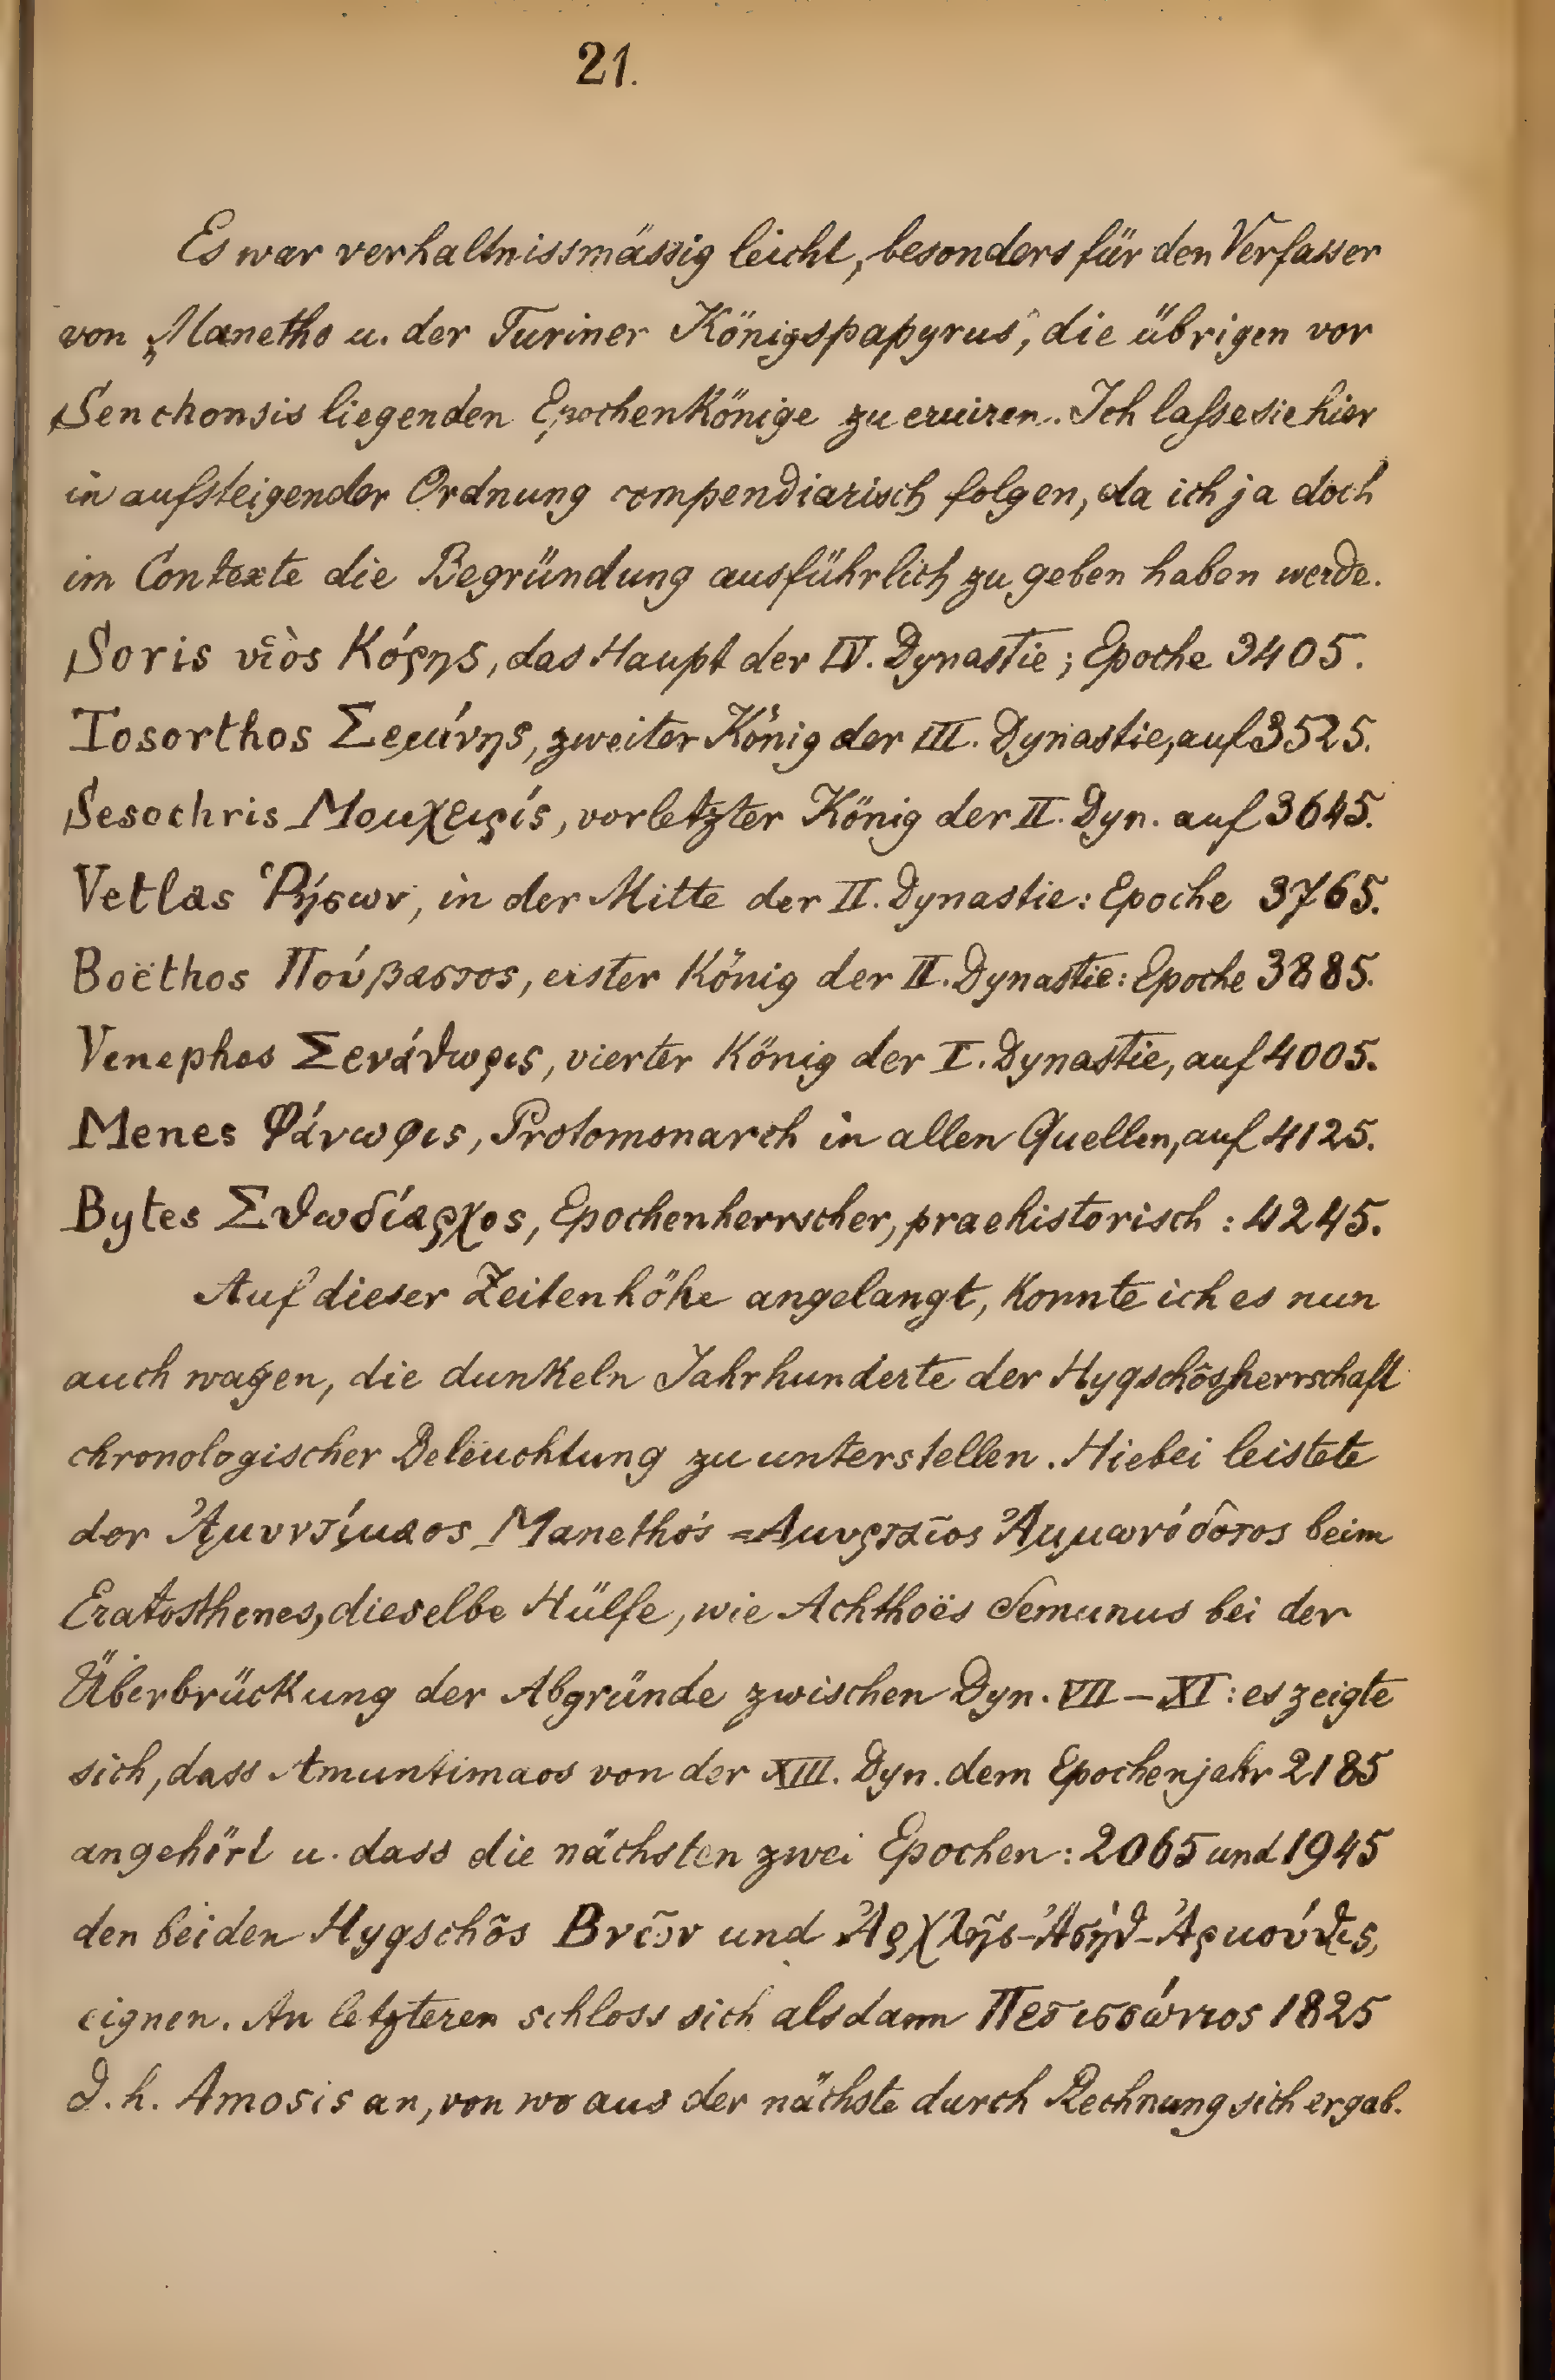 21.
Es war verhaltnissmässig leicht, besonders für den Verfasser
von „Manetho u. der Turiner Königspapyrus“, die übrigen vor
Senchonsis liegenden Epochenkönige zu eruiren. Ich lasse sie hier
in aufsteigender Ordnung compendiarisch folgen, da ich ja doch
im Contexte die Begründung ausführlich zu geben haben werde.
Soris υἱὸς Κόρης, das Haupt der IV. Dynastie; Epoche 3405.
Tosorthos Σεμάνης, zweiter König der III. Dynastie, auf 3525.
Sesochris Μουχειρίς, vorletzter König der II. Dyn. auf 3645.
Vetlas Ῥήσων, in der Mitte der II. Dynastie: Epoche 3765.
Boëthos Πούβαστος, erster König der II. Dynastie: Epoche 3885.
Venephes Σενάθωρις, vierter König der I. Dynastie, auf 4005.
Menes Φάνωφις, Protomonarch in allen Quellen, auf 4125.
Bytes Σθωδίαρχος, Epochenherrscher, praehistorisch: 4245.
Auf dieser Zeitenhöhe angelangt, konnte ich es nun
auch wagen, die dunkeln Jahrhunderte der Hyqschôsherrschaft
chronologischer Beleuchtung zu unterstellen. Hiebei leistete
der Ἀμυντίμαος Manetho's = Ἀμυρταῖος Ἀμμωνόδοτος beim
Eratosthenes, dieselbe Hülfe, wie Achthoës Semunus bei der
Überbrückung der Abgründe zwischen Dyn. VII – XI: es zeigte
sich, dass Amuntimaos von der XIII. Dyn. dem Epochenjahr 2185
angehört u. dass die nächsten zwei Epochen: 2065 und 1945
den beiden Hyqschôs Βνῶν und Ἀρχλῆς-Ἀσήθ-Ἀρμούθις,
eignen. An letzteren schloss sich alsdann 1825
d. h. Amosis an, von wo aus der nächste durch Rechnung sich ergab.